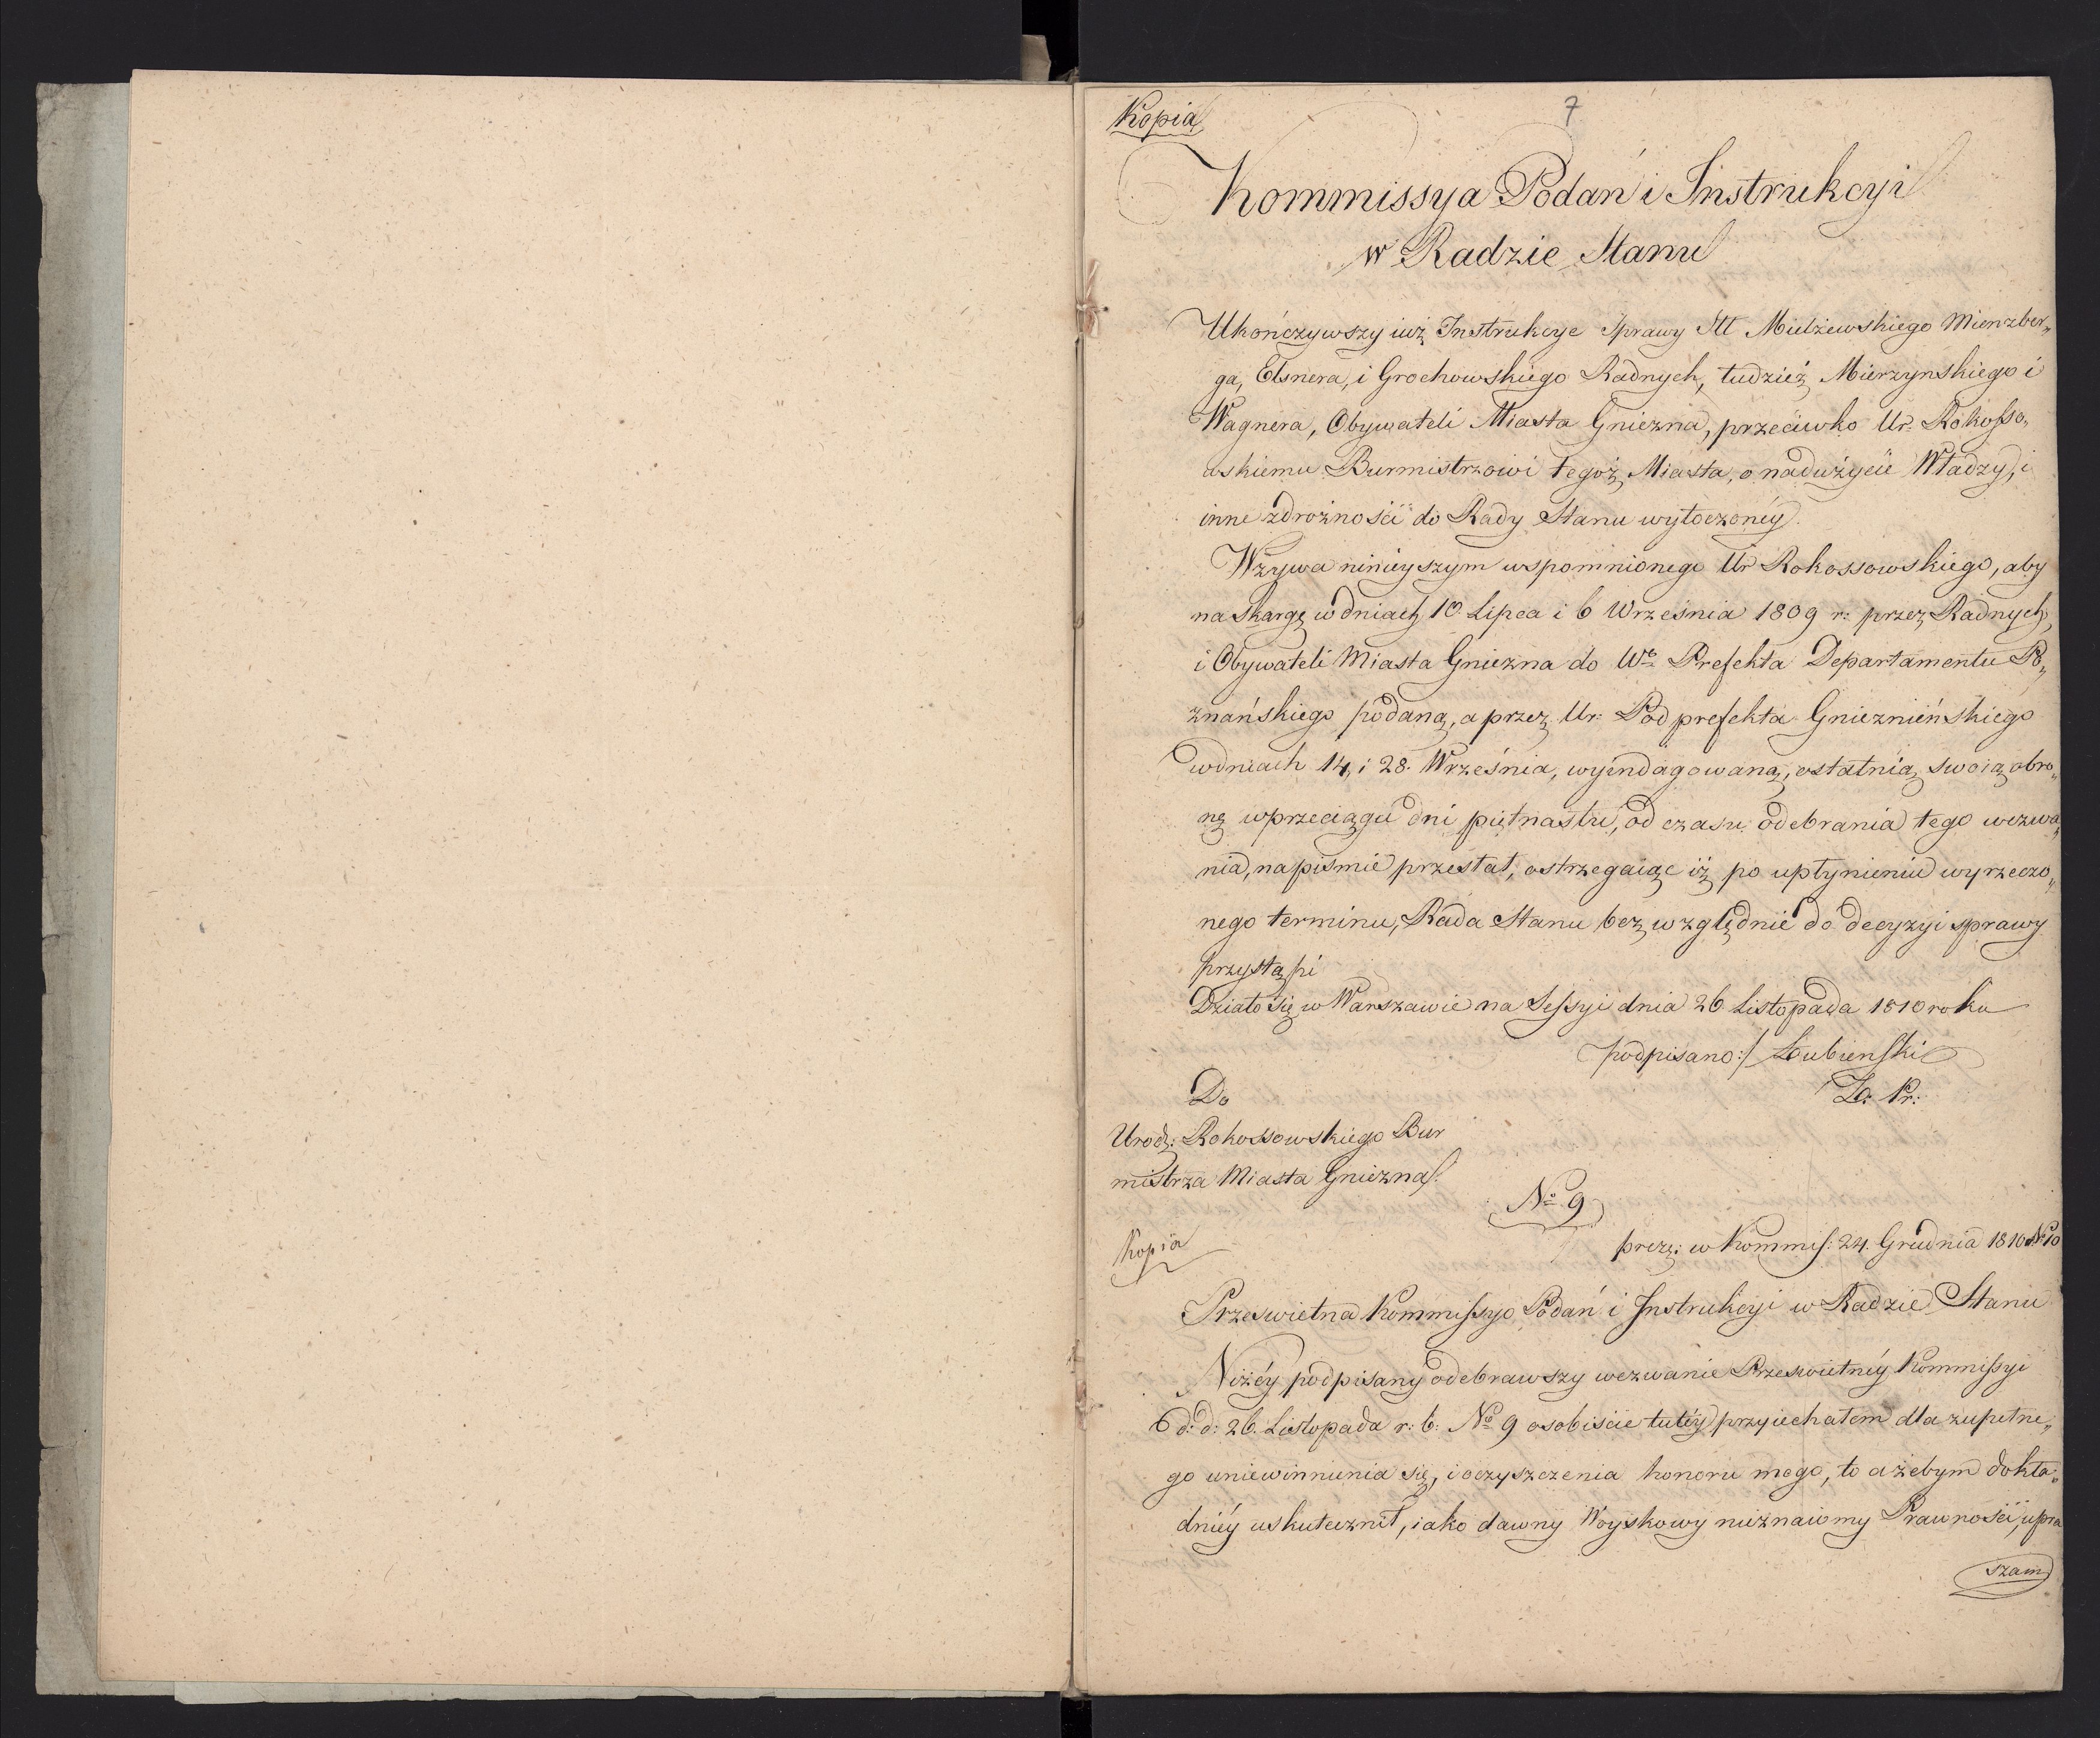 Kopia
7
Kommissya Podań i Instrukcyi
w Radzie Stanu
Ukończywszy iuż Instrukcye Sprawy Mielżewskiego Mienzber„
ga, Elsnera, i Grochowskiego Radnych, tudzież Mierzynskiego i
Wagnera, Obywateli Miasta Gniezna, przeciwko Ur: Rokosso„
wskiemu Burmistrzowi tegoż Miasta, o nadużycie Władzy, i
inne zdrożności do Rady Stanu wytoczonéy.
Wzywa ninieyszym wspomnionego Ur Rokossowskiego, aby
na skargę w dniach 10 Lipca i 6 Września 1809 r: przez Radnych,
i Obywateli Miasta Gniezna do Wo Prefekta Departamentu Po„
znańskiego podaną, a przez Ur: Pod prefekta Gnieznieńskiego
w dniach 14, i 28. Września, wyindagowaną, ostatnią swoią obro„
nę w przeciągu dni piętnastu, od czasu odebrania tego wezwa„
nia, na pismie przesłał, ostrzegaiąc iż po upłynieniu wyrzeczo„
nego terminu, Rada Stanu bez względnie do decyzyi sprawy
przystąpi
Działo się w Warszawie na Sessyi dnia 26 Listopada 1810 roku
podpisano:/ Łubienski
Z. Pr:
Do
Urodz: Rokossowskiego Bur
mistrza Miasta Gniezna.
No 9
Kopia
prez: w Kommis: 24. Grudnia 1810 No 10
Przeswietna Kommissyo Podań i Instrukcyi w Radzie Stanu
Niżéy podpisany odebrawszy wezwanie Przeswietnéy Kommissyi
d: d: 26. Listopada r: b: No 9 osobiscie tutéy przyiechałem dla zupełne„
go uniewinnienia się, i oczyszczenia honoru mego, to ażebym dokła„
dniéy uskutecznił, iako dawny Woyskowy nieznaiomy Prawności, upra
szam